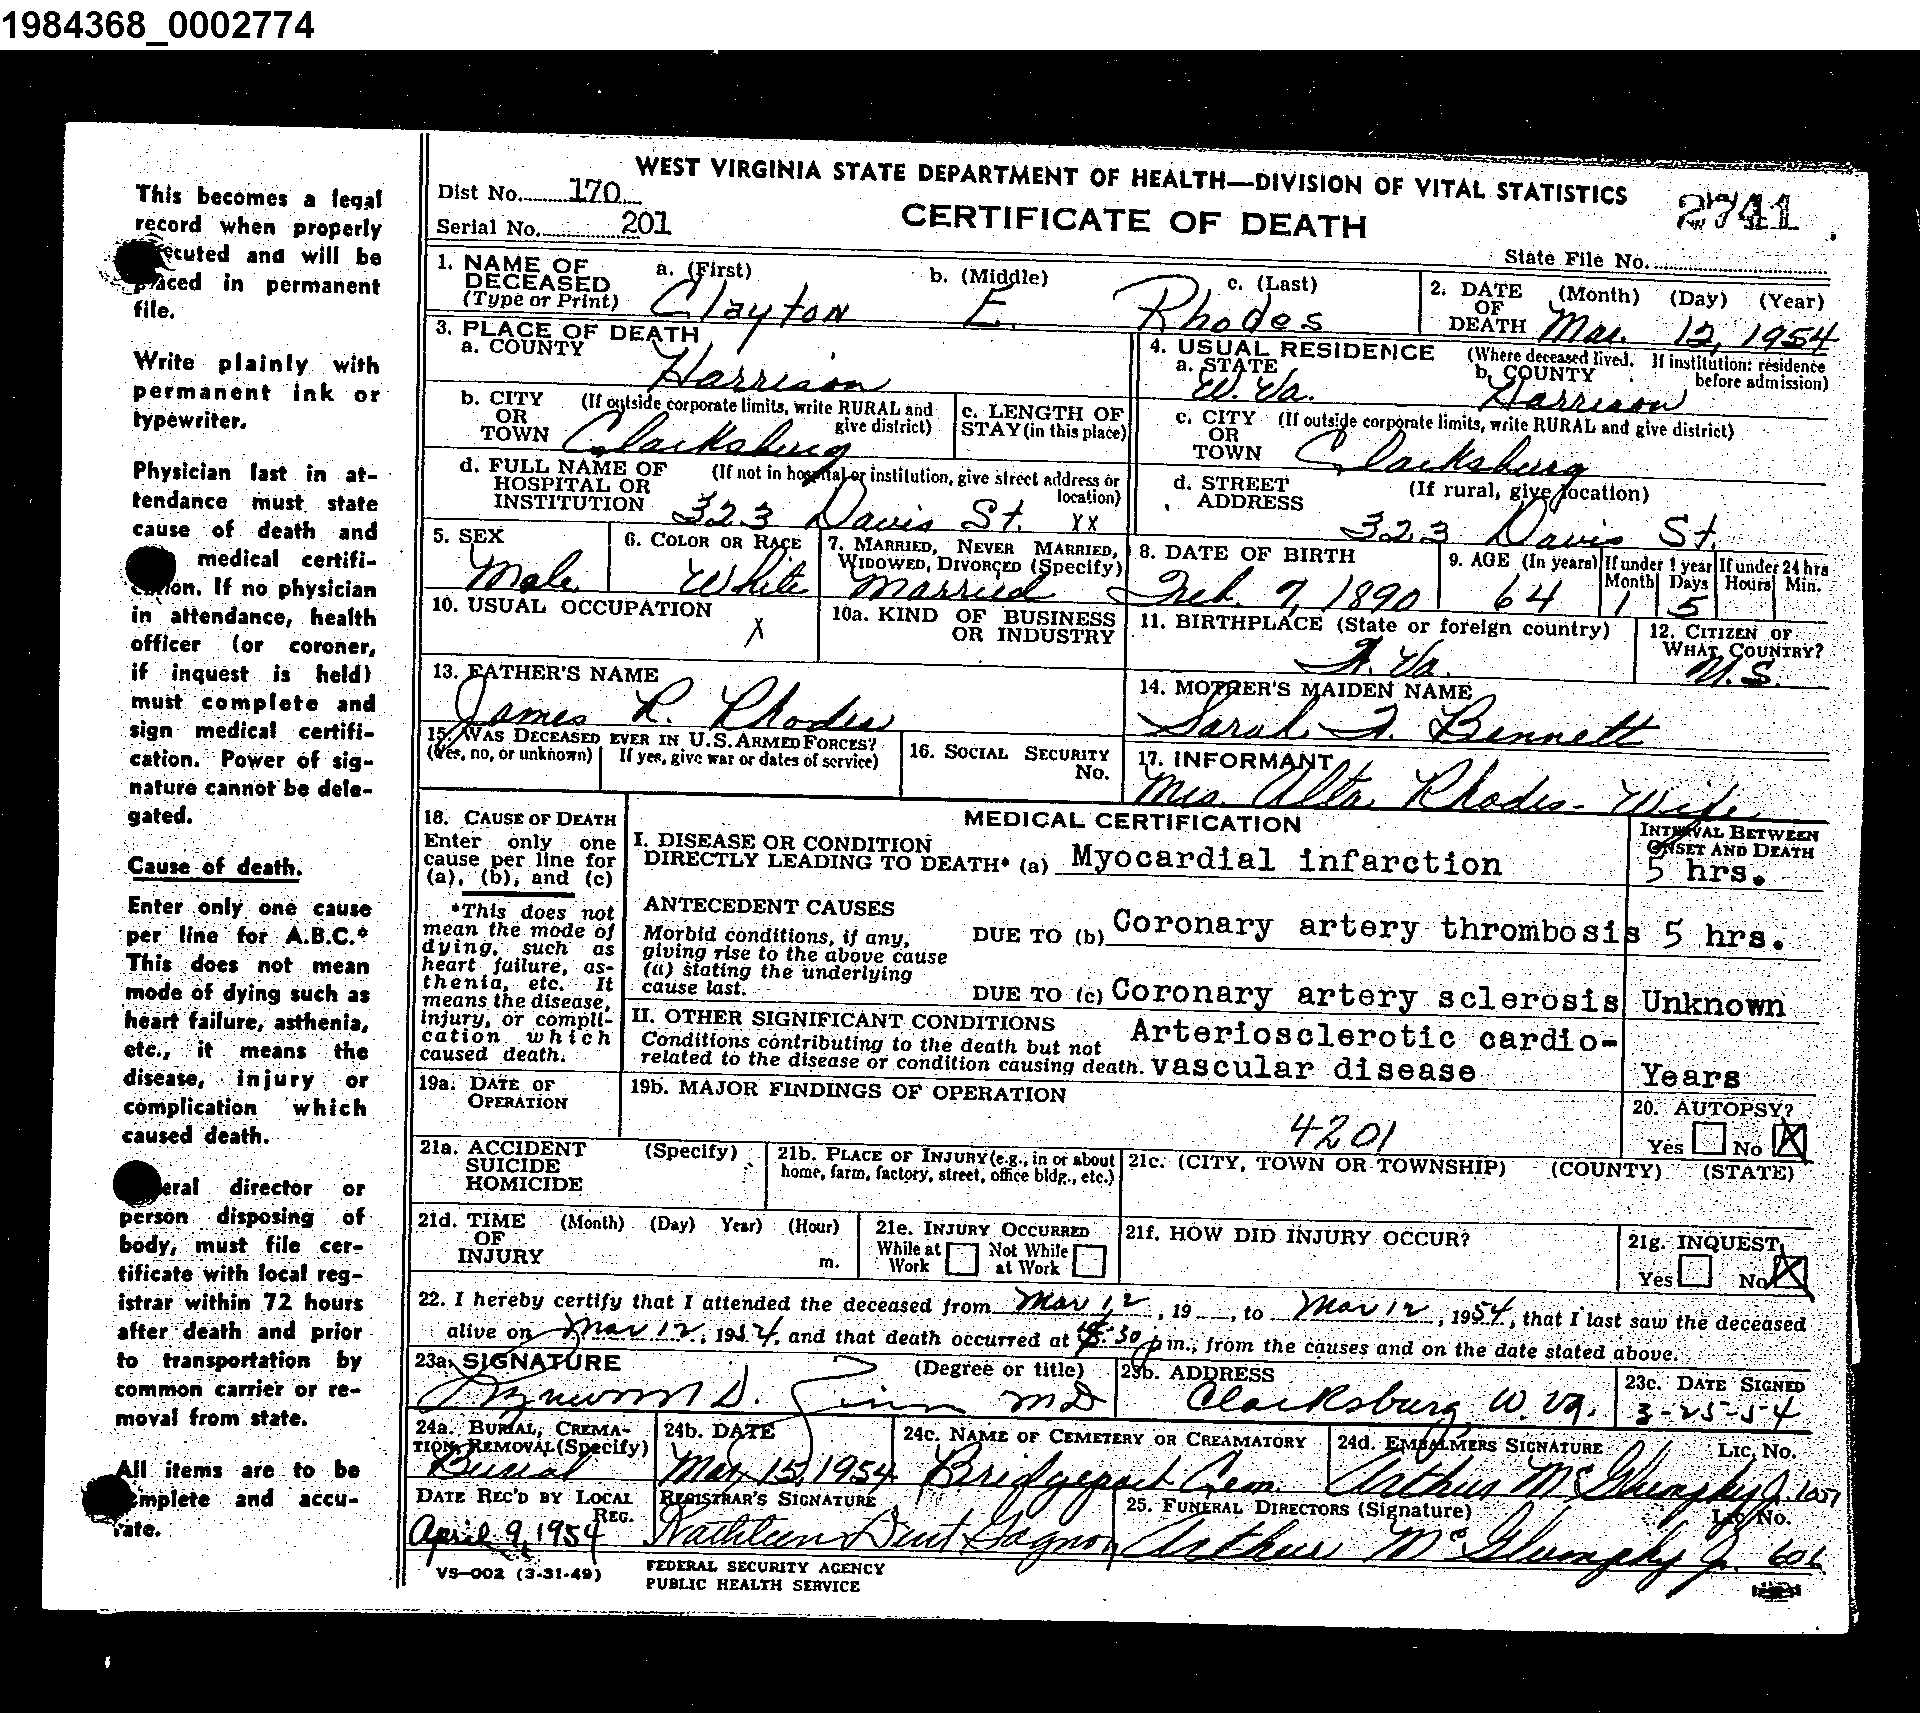 1984368_0002774
This becomes a legal
record when properly
executed and will be
placed in permanent
file.
Write plainly with
permanent ink or
typewriter.
Physician last in at-
tendance must state
cause of death and
medical certifi-
cation. If no physician
in attendance, health
officer (or coroner,
if inquest is held)
must complete and
sign medical certifi-
cation. Power of sig-
nature cannot be dele-
gated.
Cause of death.
Enter only one cause
per line for A.B.C.*
This does not mean
mode of dying such as
heart failure, asthenia,
etc., it means the
disease, injury or
complication which
caused death.
Funeral director or
person disposing of
body, must file cer-
tificate with local reg-
istrar within 72 hours
after death and prior
to transportation by
common carrier or re-
moval from state.
All items are to be
complete and accu-
rate.
WEST VIRGINIA STATE DEPARTMENT OF HEALTH—DIVISION OF VITAL STATISTICS
Dist No. 170
Serial No. 201
CERTIFICATE OF DEATH
2741
State File No.
1. NAME OF DECEASED (Type or Print) a. (First) Clayton b. (Middle) E. c. (Last) Rhodes
2. DATE OF DEATH (Month) (Day) (Year) Mar. 12, 1954
3. PLACE OF DEATH
a. COUNTY Harrison
4. USUAL RESIDENCE (Where deceased lived. If institution: residence before admission)
a. STATE W. Va. b. COUNTY Harrison
b. CITY OR TOWN (If outside corporate limits, write RURAL and give district) Clarksburg
c. LENGTH OF STAY (in this place)
c. CITY OR TOWN (If outside corporate limits, write RURAL and give district) Clarksburg
d. FULL NAME OF HOSPITAL OR INSTITUTION (If not in hospital or institution, give street address or location) 323 Davis St. XX
d. STREET ADDRESS (If rural, give location) 323 Davis St.
5. SEX Male
6. COLOR OR RACE White
7. MARRIED, NEVER MARRIED, WIDOWED, DIVORCED (Specify) Married
8. DATE OF BIRTH Feb. 7, 1890
9. AGE (In years) 64 If under 1 year Month 1 Days 5 If under 24 hrs Hours Min.
10. USUAL OCCUPATION X
10a. KIND OF BUSINESS OR INDUSTRY
11. BIRTHPLACE (State or foreign country) W. Va.
12. CITIZEN OF WHAT COUNTRY? U.S.
13. FATHER'S NAME James R. Rhodes
14. MOTHER'S MAIDEN NAME Sarah F. Bennett
15. WAS DECEASED EVER IN U.S. ARMED FORCES?
(Yes, no, or unknown) If yes, give war or dates of service)
16. SOCIAL SECURITY No.
17. INFORMANT Mrs. Alta Rhodes - Wife
18. CAUSE OF DEATH
Enter only one
cause per line for
(a), (b), and (c)
*This does not
mean the mode of
dying, such as
heart failure, as-
thenia, etc. It
means the disease,
injury, or compli-
cation which
caused death.
MEDICAL CERTIFICATION
INTERVAL BETWEEN ONSET AND DEATH
I. DISEASE OR CONDITION
DIRECTLY LEADING TO DEATH* (a) Myocardial infarction 5 hrs.
ANTECEDENT CAUSES
Morbid conditions, if any,
giving rise to the above cause
(a) stating the underlying
cause last.
DUE TO (b) Coronary artery thrombosis 5 hrs.
DUE TO (c) Coronary artery sclerosis Unknown
II. OTHER SIGNIFICANT CONDITIONS
Conditions contributing to the death but not
related to the disease or condition causing death.
Arteriosclerotic cardio-
vascular disease Years
19a. DATE OF OPERATION
19b. MAJOR FINDINGS OF OPERATION
4201
20. AUTOPSY?
Yes No X
21a. ACCIDENT SUICIDE HOMICIDE (Specify)
21b. PLACE OF INJURY (e.g., in or about home, farm, factory, street, office bldg., etc.)
21c. (CITY, TOWN OR TOWNSHIP) (COUNTY) (STATE)
21d. TIME OF INJURY (Month) (Day) Year) (Hour) m.
21e. INJURY OCCURRED
While at Work Not While at Work
21f. HOW DID INJURY OCCUR?
21g. INQUEST
Yes No X
22. I hereby certify that I attended the deceased from Mar 12, 19__, to Mar 12, 1954, that I last saw the deceased
alive on Mar 12, 1954, and that death occurred at :30 p m., from the causes and on the date stated above.
23a. SIGNATURE (Degree or title) D. Zinn MD
23b. ADDRESS Clarksburg, W. Va.
23c. DATE SIGNED 3-25-54
24a. BURIAL, CREMATION, REMOVAL (Specify) Burial
24b. DATE Mar 15, 1954
24c. NAME OF CEMETERY OR CREAMATORY Bridgeport Cem.
24d. EMBALMERS SIGNATURE Lic. No. Arthur McGlumphy Jr. 1051
DATE REC'D BY LOCAL REG. April 9, 1954
REGISTRAR'S SIGNATURE Kathleen Dent Gagnon
25. FUNERAL DIRECTORS (Signature) Lic. No. Arthur McGlumphy Jr.
VS—002 (3-31-49)
FEDERAL SECURITY AGENCY
PUBLIC HEALTH SERVICE